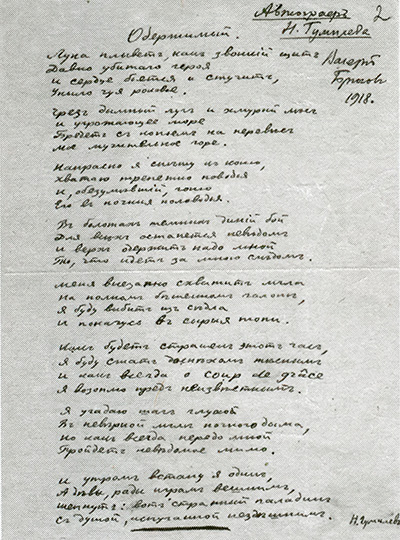 Автографъ
Н. Гумилева
2
Валерій
Брюсов
1918.
Одержимый.
Луна плыветъ, какъ звонкій щитъ
Давно убитаго героя
и сердце бьется и стучитъ,
Уныло чуя роковое.
Чрезъ дымный лугъ и хмурый лѣсъ
и угрожающее море
Бредетъ съ копьемъ на перевѣсъ
мое мучительное горе.
Напрасно я спѣшу къ коню,
хватаю трепетно поводья
и, обезумѣвшій, гоню
Его въ ночныя половодья.
Въ болотахъ темныхъ дикій бой
Для всѣхъ останется невѣдомъ
и верхъ одержитъ надо мной
Тотъ, что идетъ за мною слѣдомъ.
меня внезапно схватитъ мгла
На полномъ бѣшеномъ галопѣ,
Я буду выбитъ изъ сѣдла
и покачусь въ сырыя топи.
Какъ будетъ страшенъ этотъ часъ,
Я буду сжатъ доспѣхомъ тѣснымъ
и какъ всегда о coup de grâce
Я возоплю предъ неизвѣстнымъ.
Я угадаю шагъ глухой
Въ невѣрной мглѣ ночного дыма,
Но какъ всегда передо мной
Пройдетъ невѣдомое мимо.
и утромъ встану я одинъ,
А дѣвы, рады играмъ вешнимъ,
шепнутъ: вотъ странный паладинъ
Съ душой, измученной нездѣшнимъ.
Н. Гумилевъ